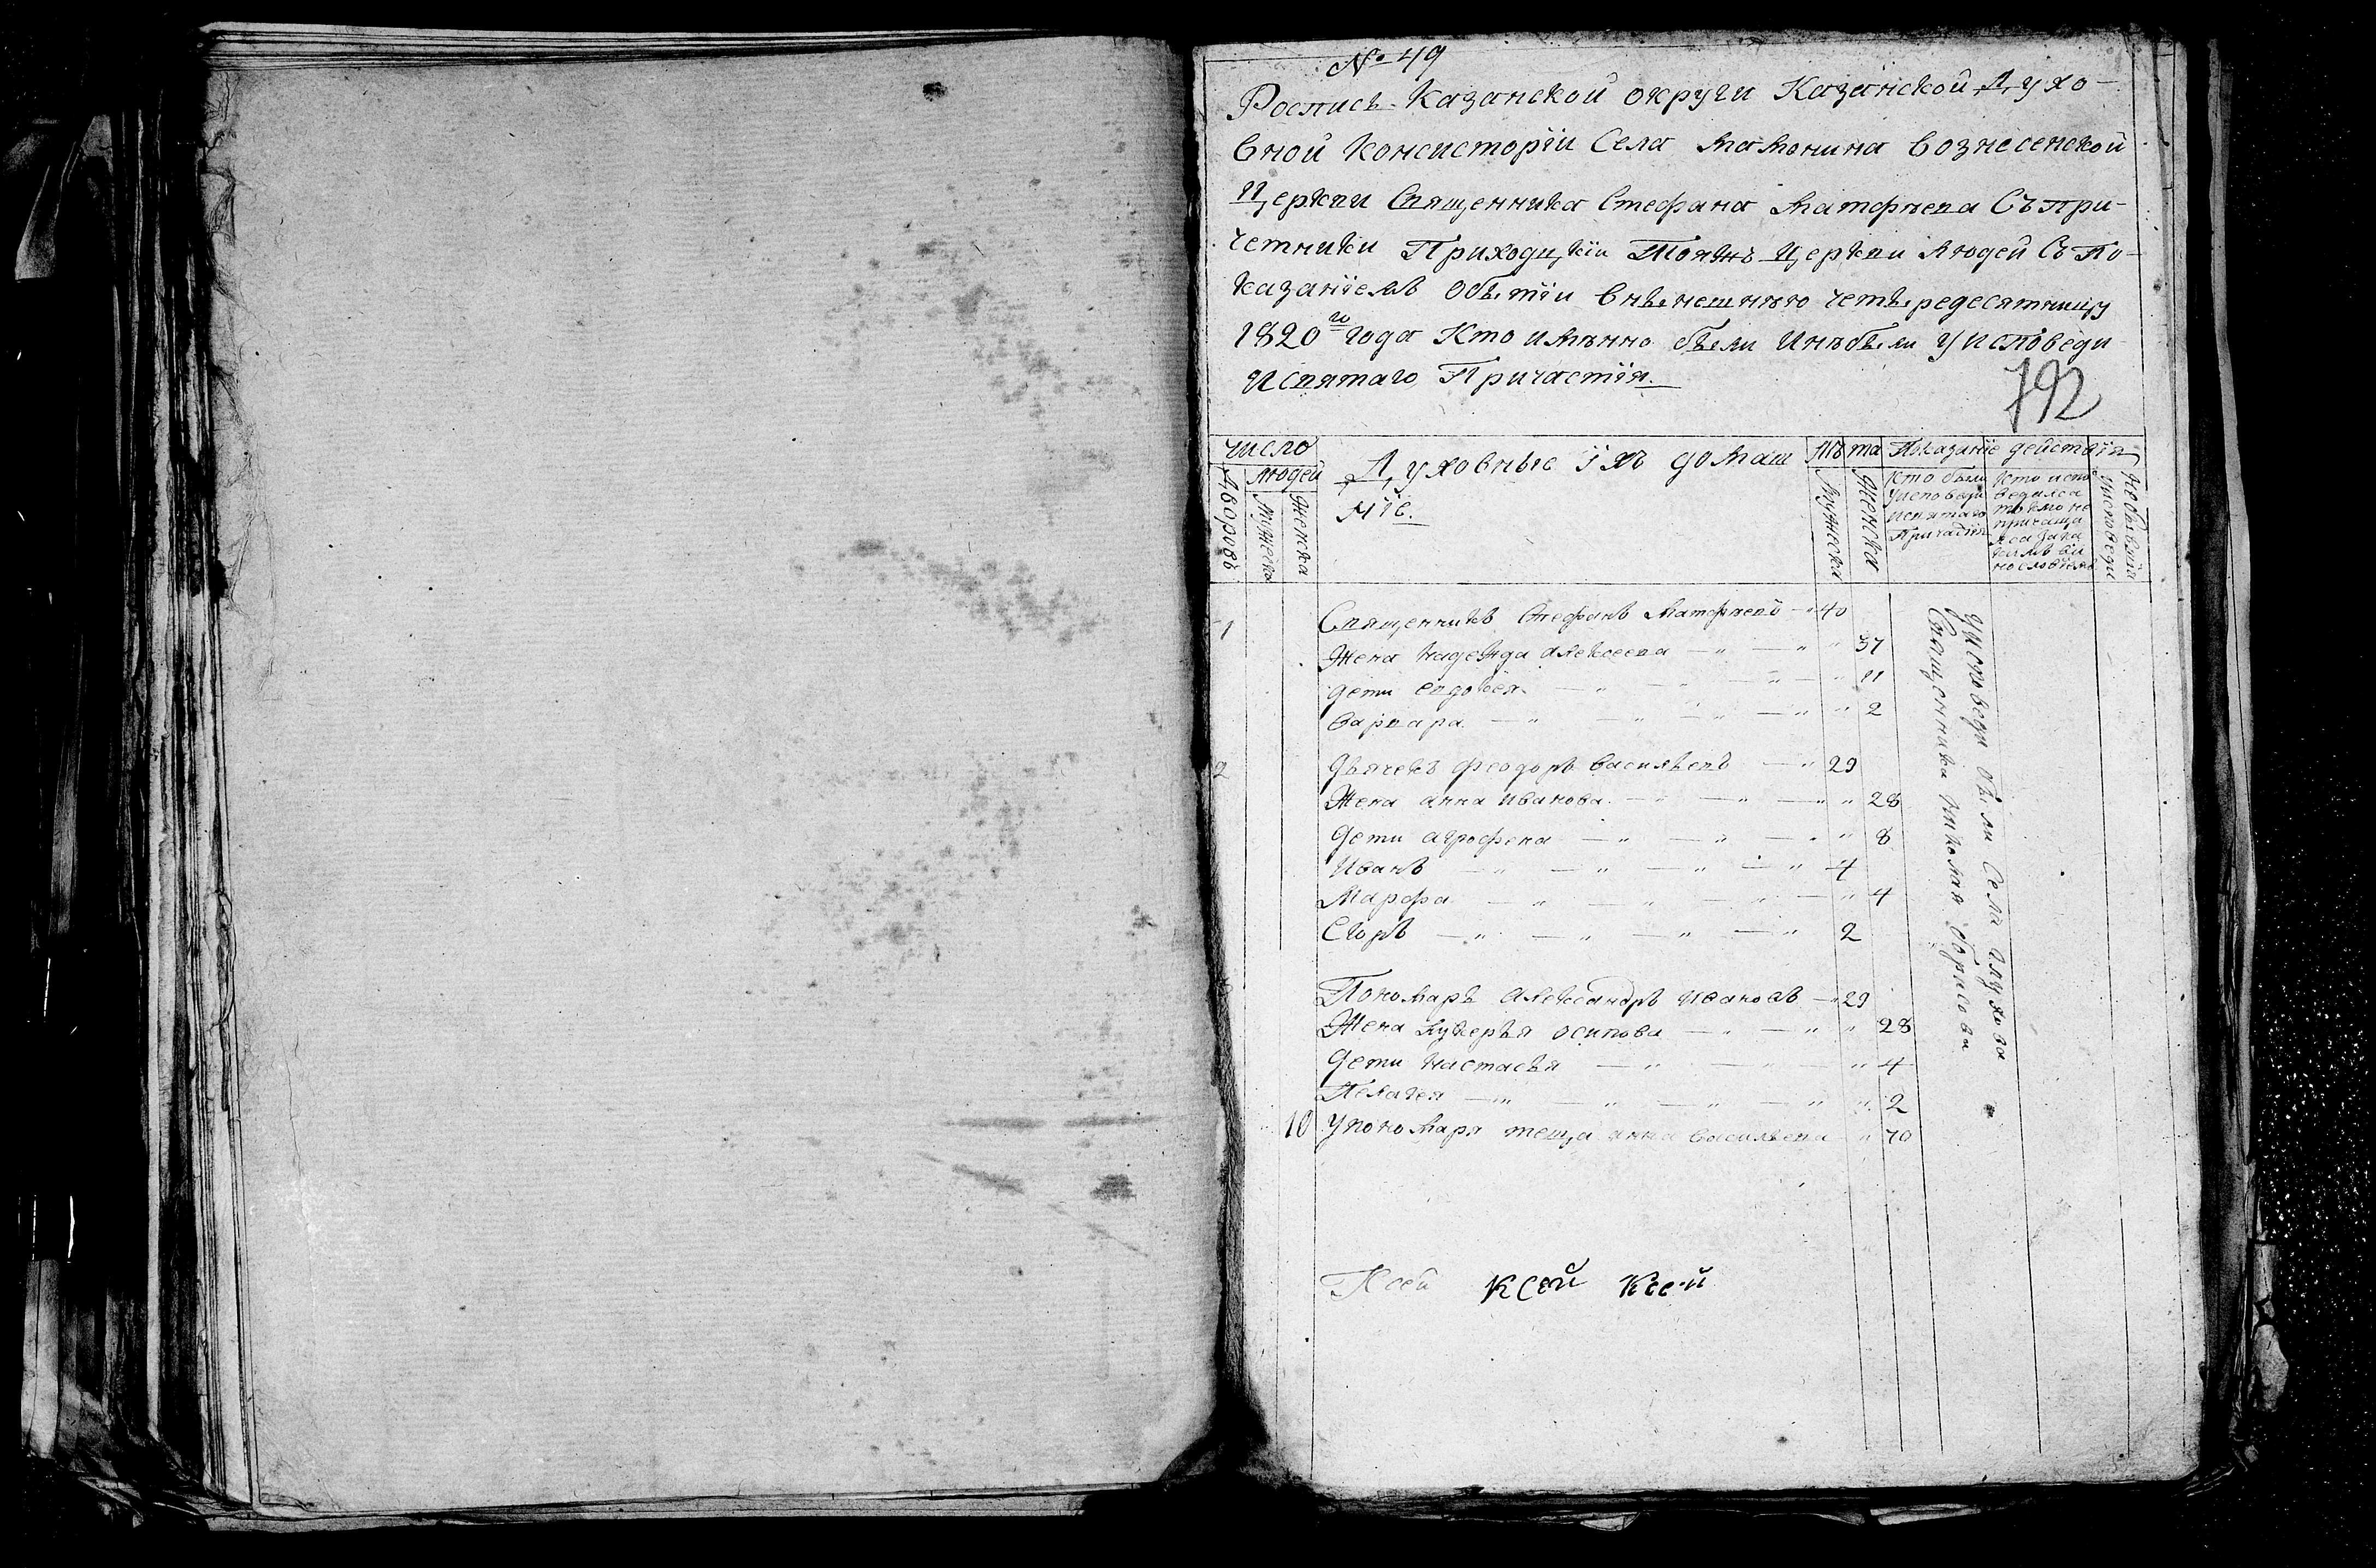 № 49
Роспись Казанской округи Казанской Духо-
вной Консисторіи Села Мамонина вознесенской
Церкви Священника Стефана Матфѣева Съ при-
четники Приходцкіи Тояжъ Церкви Людей Съ По-
казаніемъ Обытіи внынешнѣю четыредесятницу
1820го года Кто имѣнно были Инѣбыли У исповеди
Исвятаго Причастія.
792
Число
Людей
Дворовъ
Мужеска
Женска
Духовные ихъ домаш
ніе.
Лѣта
Мужеска
Женска
Показаніе действія
Кто были
Уисповеди
Исвятаго
Причастія
Кто испо
ведался
токмо не
причаща
лся
исповеди
1 Священникъ Стефанъ Матфѣевъ 40
Жена Надежда Алексеева 37
Дети Евдокея 11
Варвара 2
2 Дьячекъ Феодоръ Васильевъ 29
Жена Анна Иванова 28
Дети Агрофена 8
Иванъ 4
Марфа 4
Егоръ 2
Пономарь Александръ Ивановъ 29
Жена Лукерья Осипова 28
Дети Настасья 4
Пелагея 2
10 Упономаря теща Анна Васильева 70
Уисповеди были Села Глухова
Священника Николая Борисова
Ксей Ксей Ксей